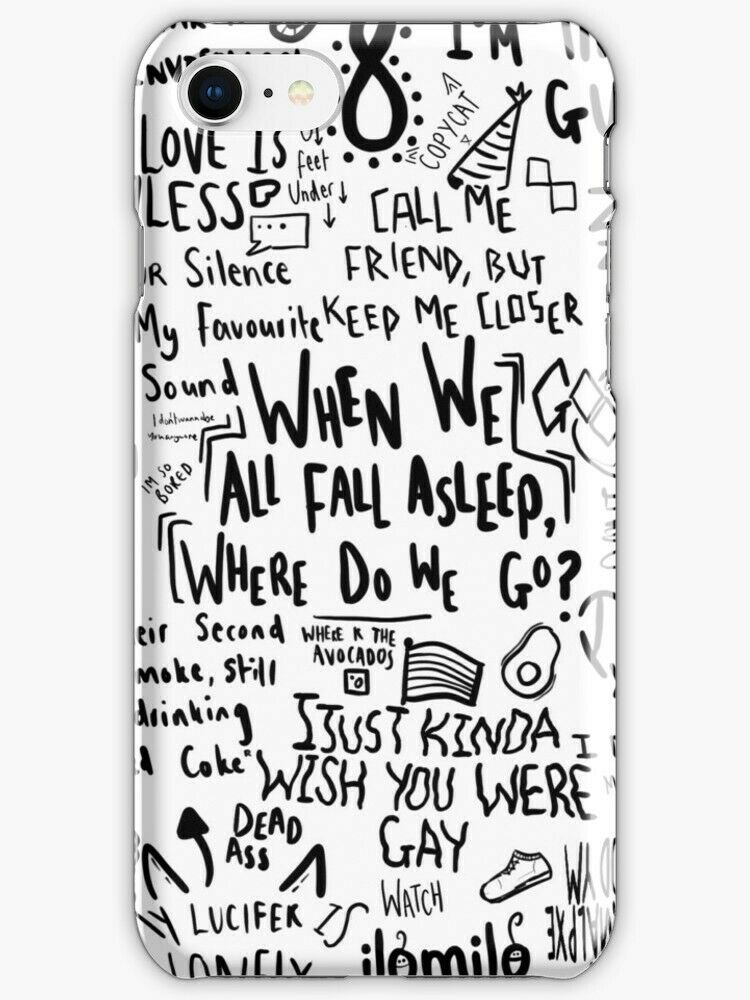 I'M
LOVE IS
LESS
8
COPYCAT
G
feet
Under
CALL ME
FRIEND, BUT
KEEP ME CLOSER
Silence
My Favourite
Sound
I don't wanna be
you anymore
I'M SO
BORED
WHEN WE
ALL FALL ASLEEP,
WHERE DO WE GO?
G
eir Second
moke, still
drinking
d Coke
WHERE R THE
AVOCADOS
I JUST KINDA
WISH YOU WERE
GAY
DEAD
ASS
WATCH
Y LUCIFER IS
LONELY
ilomilo